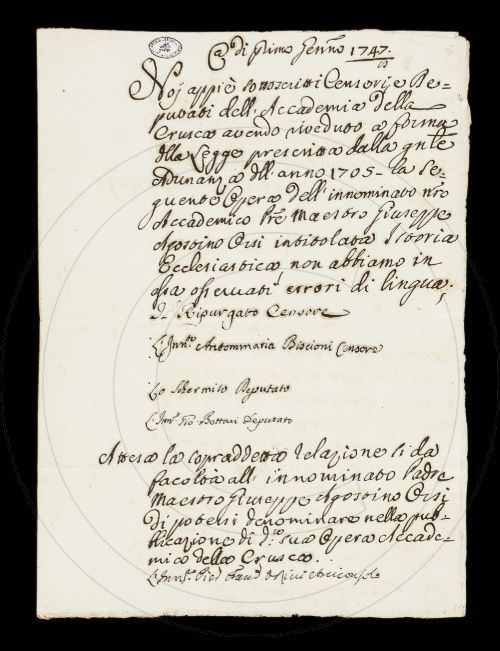 Adì primo Genn.o 1747.
Noj appiè sottoscritti Censori, e De=
putati dell'Accademia della
Crusca avendo riveduto a forma
d.lla Legge prescritta dalla gn.le
Adunanza dll'anno 1705 - la Se-
guente Opera dell'innominato n.ro
Accademico P.re Maestro Giuseppe
Agostino Orsi intitolata Istoria
Ecclesiastica non abbiamo in
essa osservati errori di lingua,
Ripurgato Censore
L'Inn.to Antommaria Biscioni Censore
Lo Schermito Deputato
L'Inn.o Gio Bottari Deputato
Attesa la sopraddetta relazione si da
facoltà all'innominato Padre
Maestro Giuseppe Agostino Orsi
di potersi denominare nella pub-
blicazione di d.ta sua Opera Accade-
mico della Crusca.
L'Inn.o de Ricci Arciconsolo